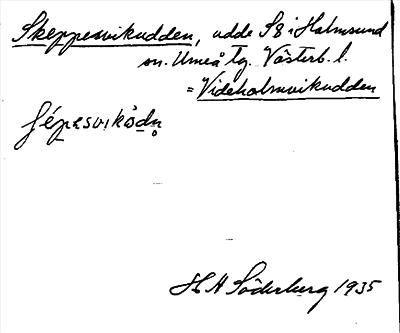 Skeppesvikudden, udde S8 i Holmsund
sn. Umeå tg. Västerb. l.
= Videholmvikudden
H A Söderberg 1935